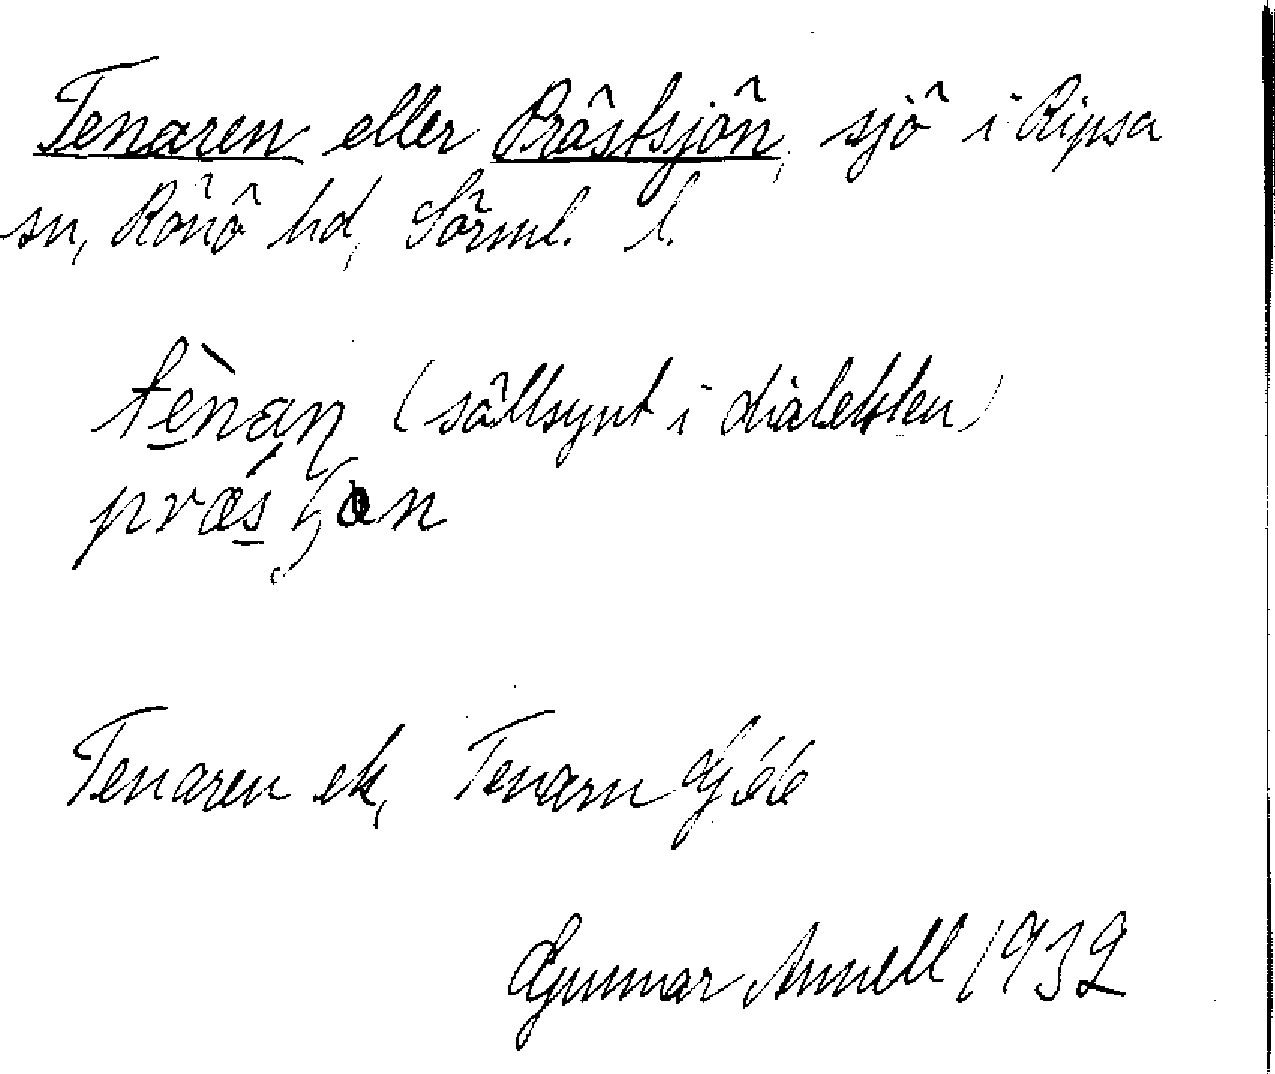 Tenaren eller Prästsjön, sjö i Ripsa
sn, Rönö hd, Sörml. l.
tènan (sällsynt i dialekten)
Tenaren ek, Tenarn
Gunnar Annell 1932